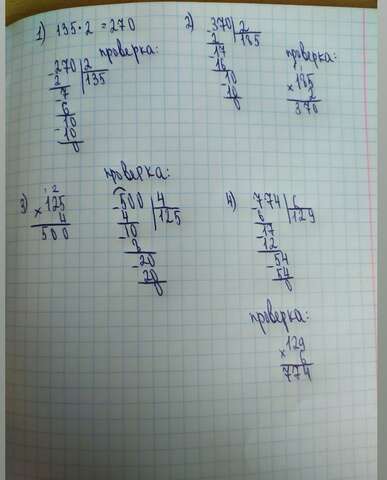 1) 135 · 2 = 270
проверка:
-270 | 2
2 | 135
-7
6
-10
10
0
2) -370 | 2
2 | 185
-17
16
-10
10
0
проверка:
× 185
2
370
3) 1 2
× 125
4
500
проверка:
-500 | 4
4 | 125
-10
8
-20
20
0
4) -774 | 6
6 | 129
-17
12
-54
54
0
проверка:
× 129
6
774